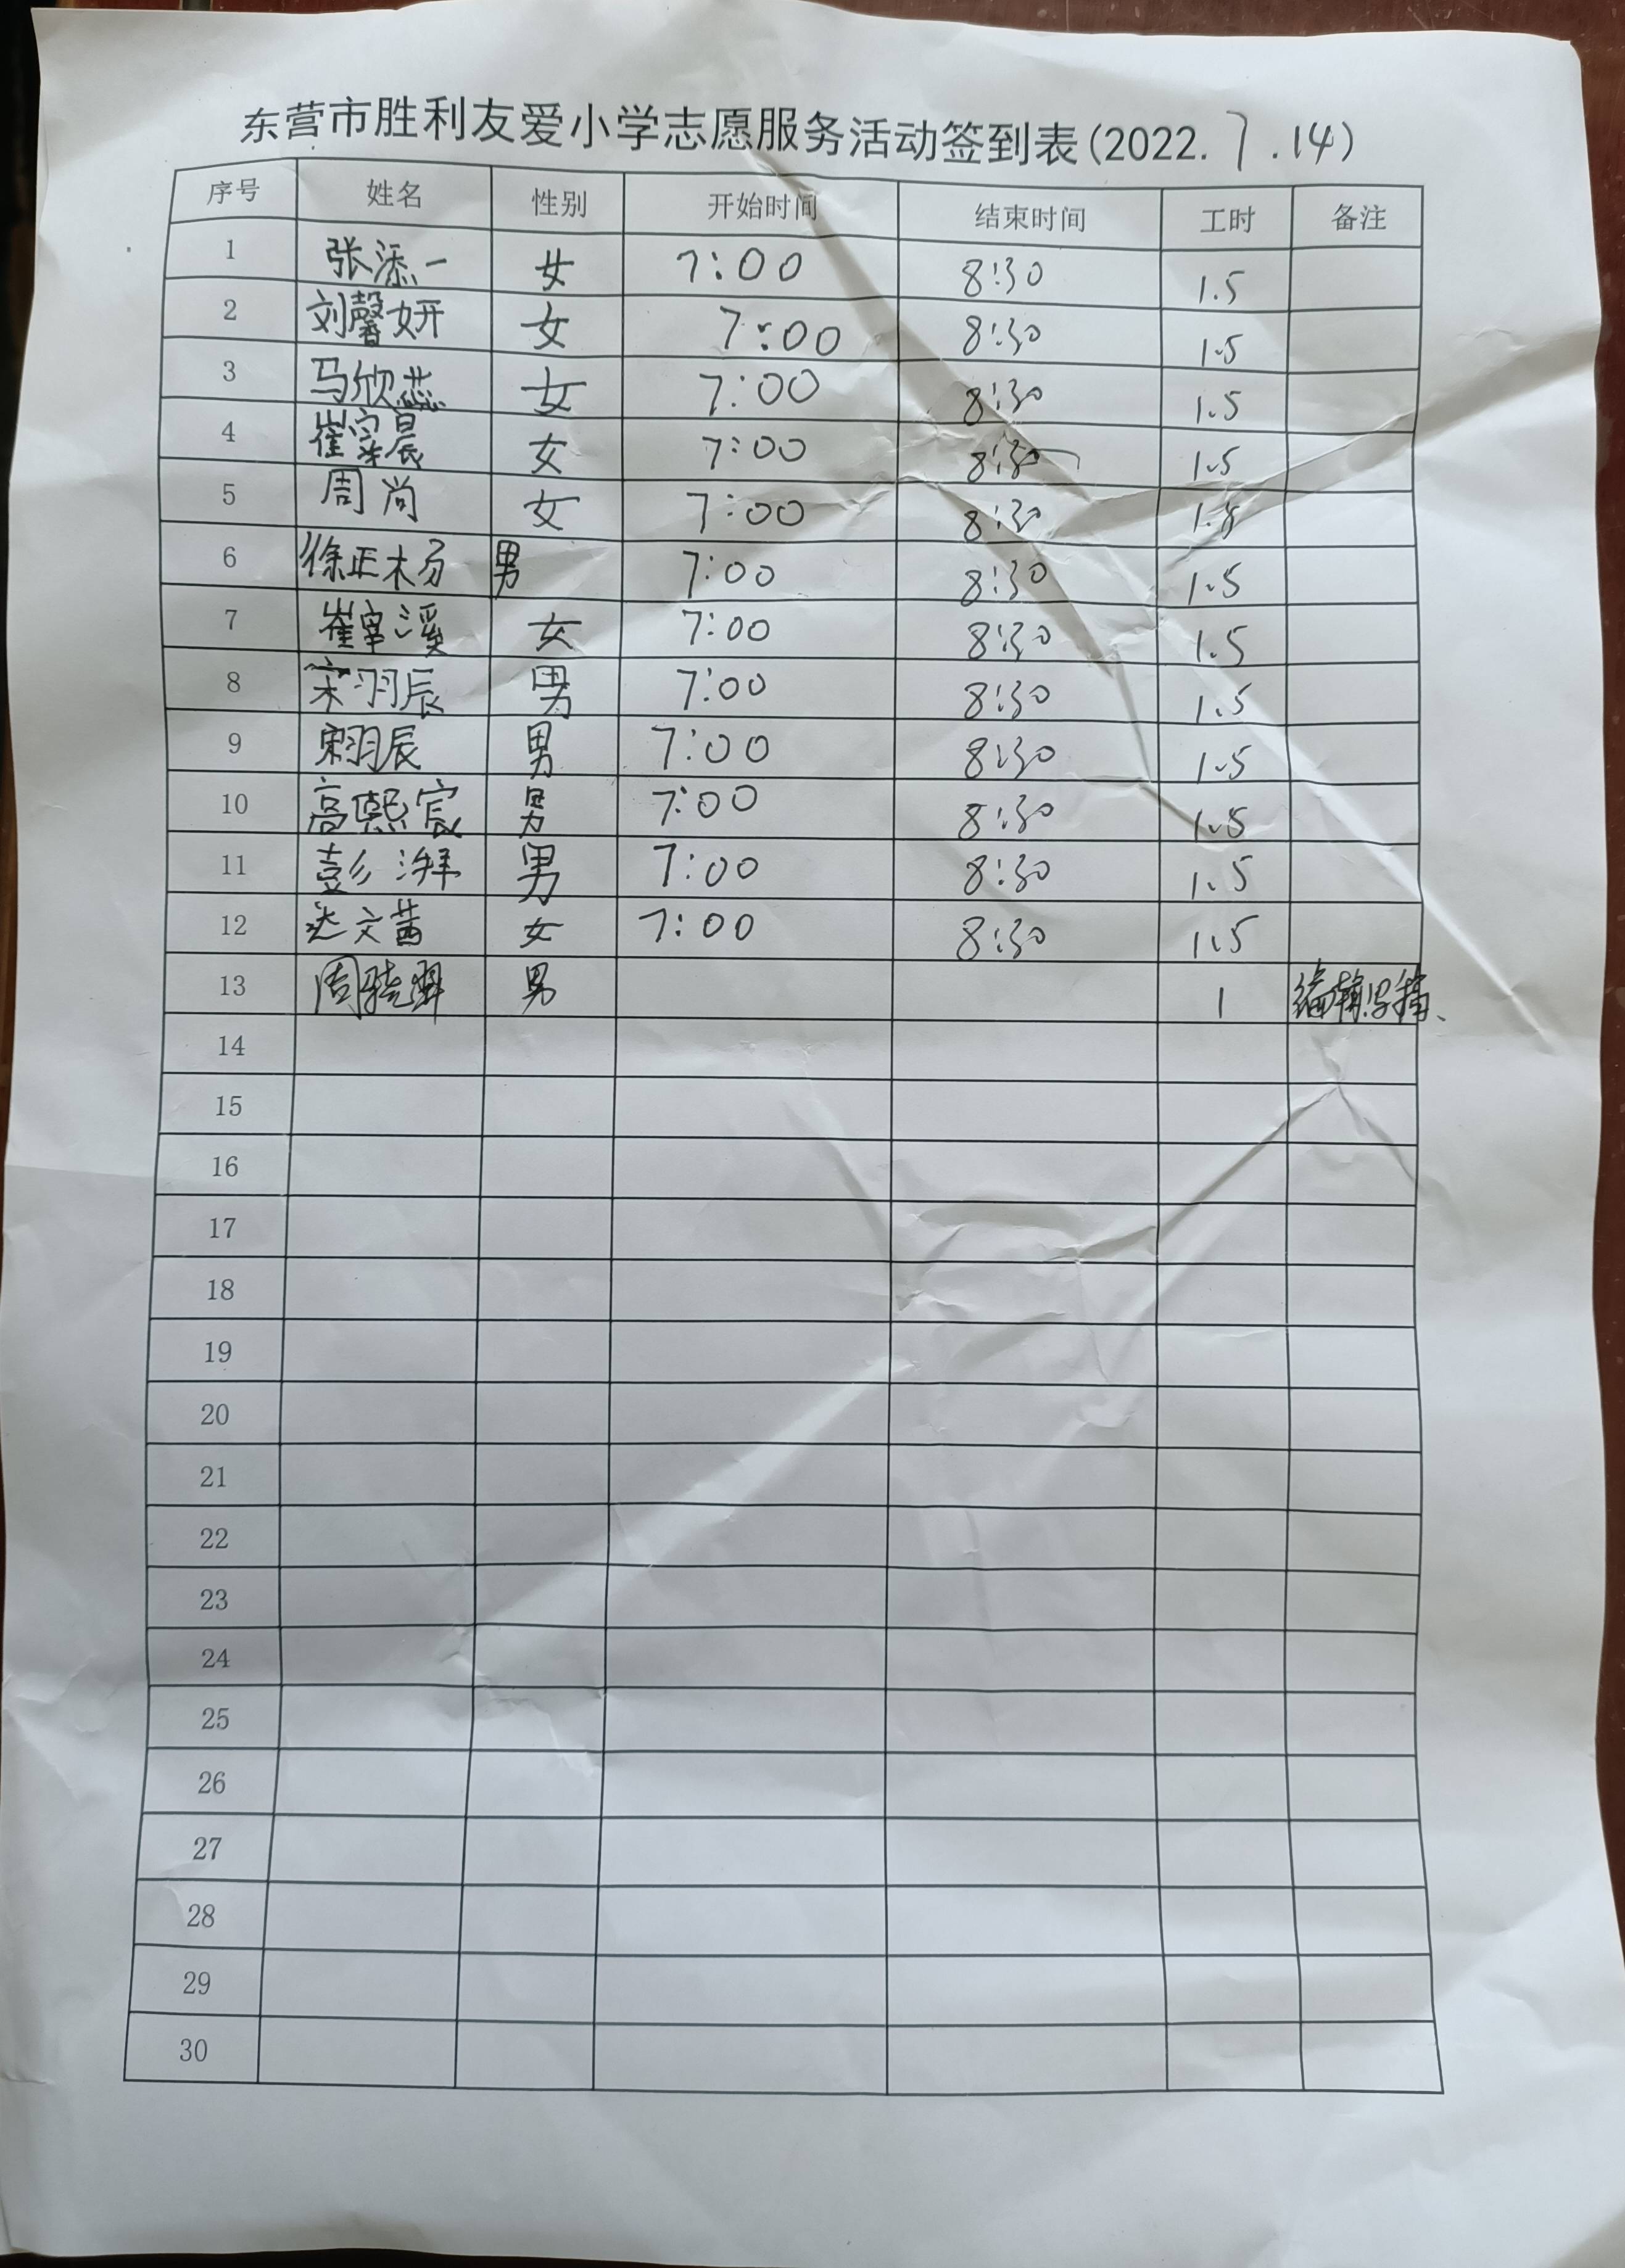 东营市胜利友爱小学志愿服务活动签到表(2022.7.14)
序号 姓名 性别 开始时间 结束时间 工时 备注
1 张添一 女 7:00 8:30 1.5
2 刘馨妍 女 7:00 8:30 1.5
3 马欣蕊 女 7:00 8:30 1.5
4 崔 女 7:00 8:30 1.5
5 周尚 女 7:00 8:30 1.5
6 徐正枌 男 7:00 8:30 1.5
7 崔 溪 女 7:00 8:30 1.5
8 宋羽辰 男 7:00 8:30 1.5
9 宋羽辰 男 7:00 8:30 1.5
10 高熙宸 男 7:00 8:30 1.5
11 彭湃 男 7:00 8:30 1.5
12 文茜 女 7:00 8:30 1.5
13 周骁 男 1 编辑写稿、
14
15
16
17
18
19
20
21
22
23
24
25
26
27
28
29
30